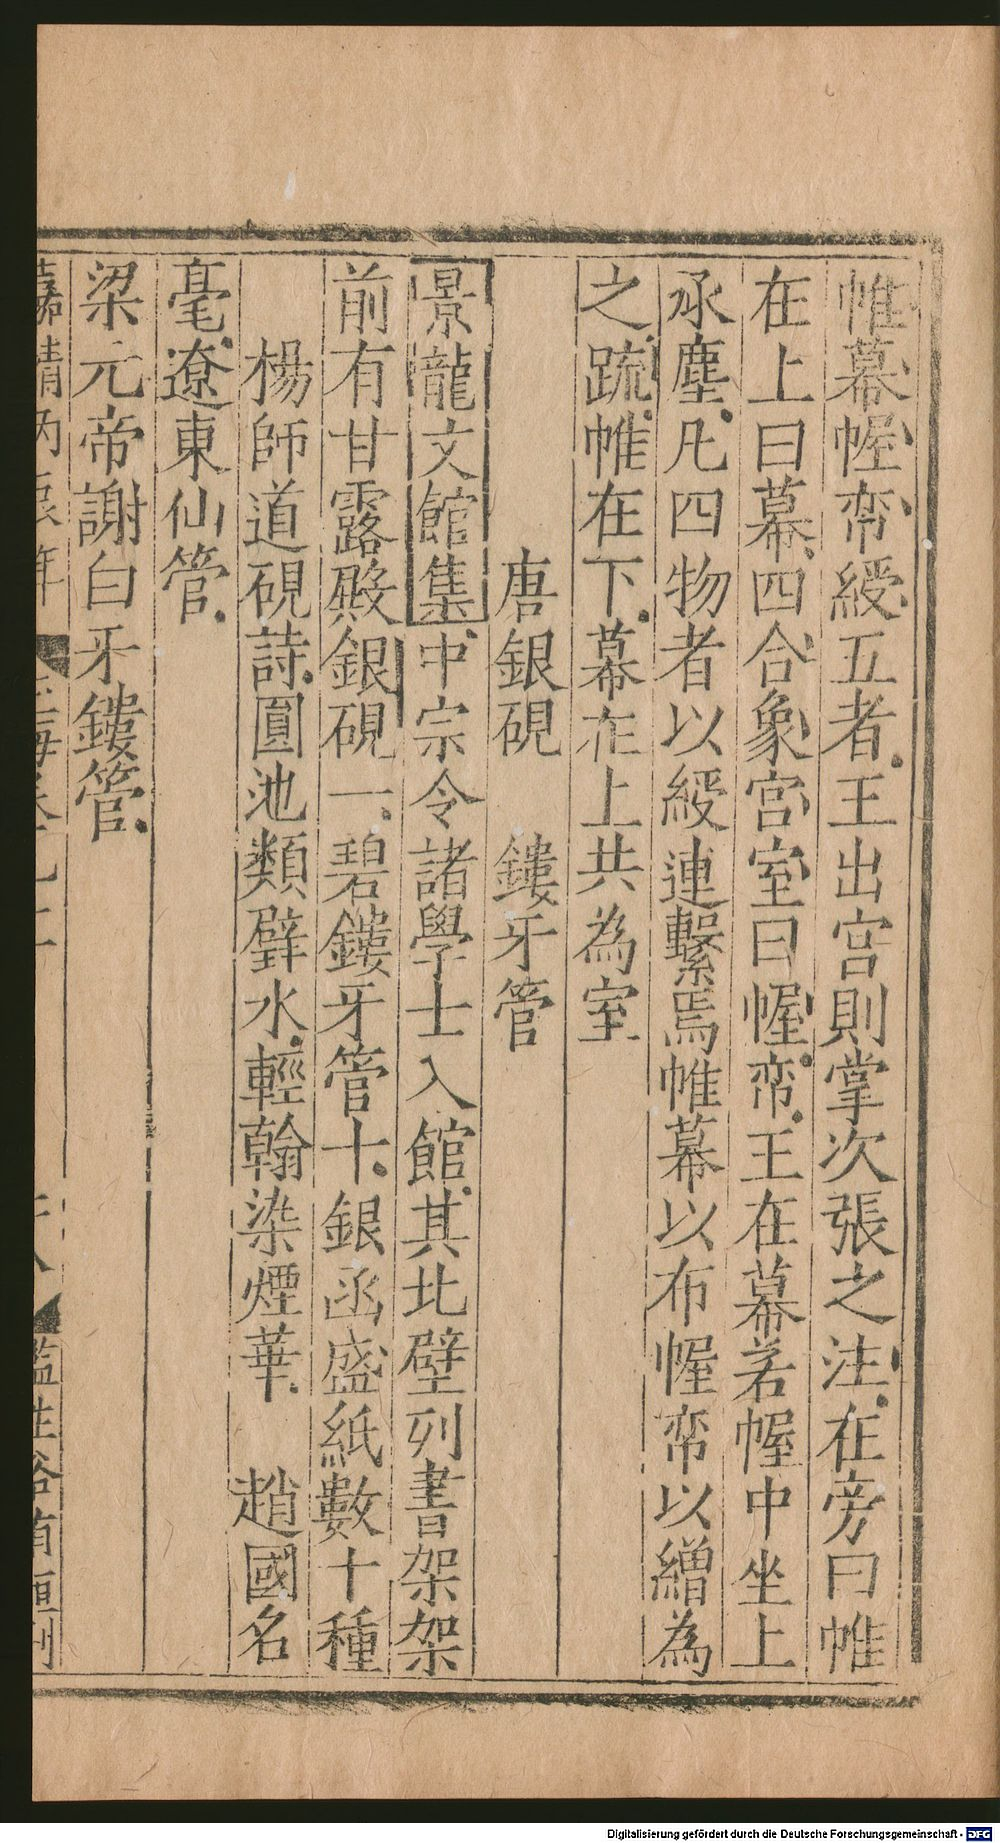 帷幕幄帟綬五者王出宫則掌次張之注在旁曰帷
在上曰幕四合象宫室曰幄帟王在幕若幄中坐上
承塵凡四物者以綬連繫焉帷幕以布幄帟以繒為
之疏帷在下幕在上共為室
唐銀硯 鏤牙管
景龍文館集中宗令諸學士入館其北壁列書架架
前有甘露殿銀硯一碧鏤牙管十銀函盛紙數十種
楊師道硯詩圓池類璧水輕翰染煙華 趙國名
毫遼東仙管
梁元帝謝白牙鏤管
嘉靖丙辰年 玉海卷九十一 十八 監生谷有恒刊
Digitalisierung gefördert durch die Deutsche Forschungsgemeinschaft - DFG